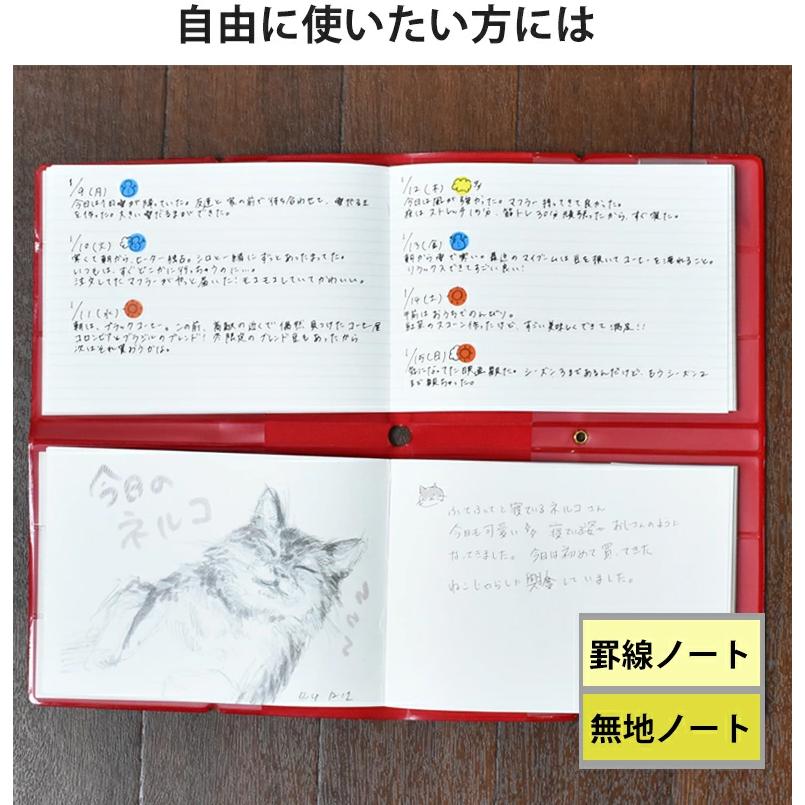 自由に使いたい方には
1/9(月)
今日は1日雪が降っていた。友達と家の前で待ち合わせて、雪だるま
を作った。大きい雪だるまができた。
1/10(火)
寒くて朝から、ヒーター独占。シロと一緒にずっとあったまってた。
いつもは、すぐどこかに行っちゃうのに...。
注文してたマフラーがやっと届いた!モコモコしていてかわいい。
1/11(水)
朝は、ブラックコーヒー。この前、
の近くで偶然見つけたコーヒー屋
コロンビアとブラジルのブレンド!
限定のブレンド豆もあったから
次はそれ買おうかな。
1/12(木)
今日は風が強かった。マフラー持ってきて良かった。
夜はストレッチ15分、筋トレ30分頑張ったから、すぐ寝た。
1/13(金)
朝から雪で寒い。最近のマイブームは豆を挽いてコーヒーを淹れること。
リラックスできてすごい良い!
1/14(土)
午前はおうちでのんびり。
紅茶のスコーン作ったけど、すごい美味しくできて満足!!
1/15(日)
気になってた映画観た。シーズン3まであるんだけど、もうシーズン2
まで観ちゃった。
今日の
ネルコ
zzz
ふてぶてと寝ているネルコさん
今日も可愛い
寝ている姿が おじさんのように
なってきました。今日は初めて買ってきた
ねこじゃらしに興奮していました。
罫線ノート
無地ノート